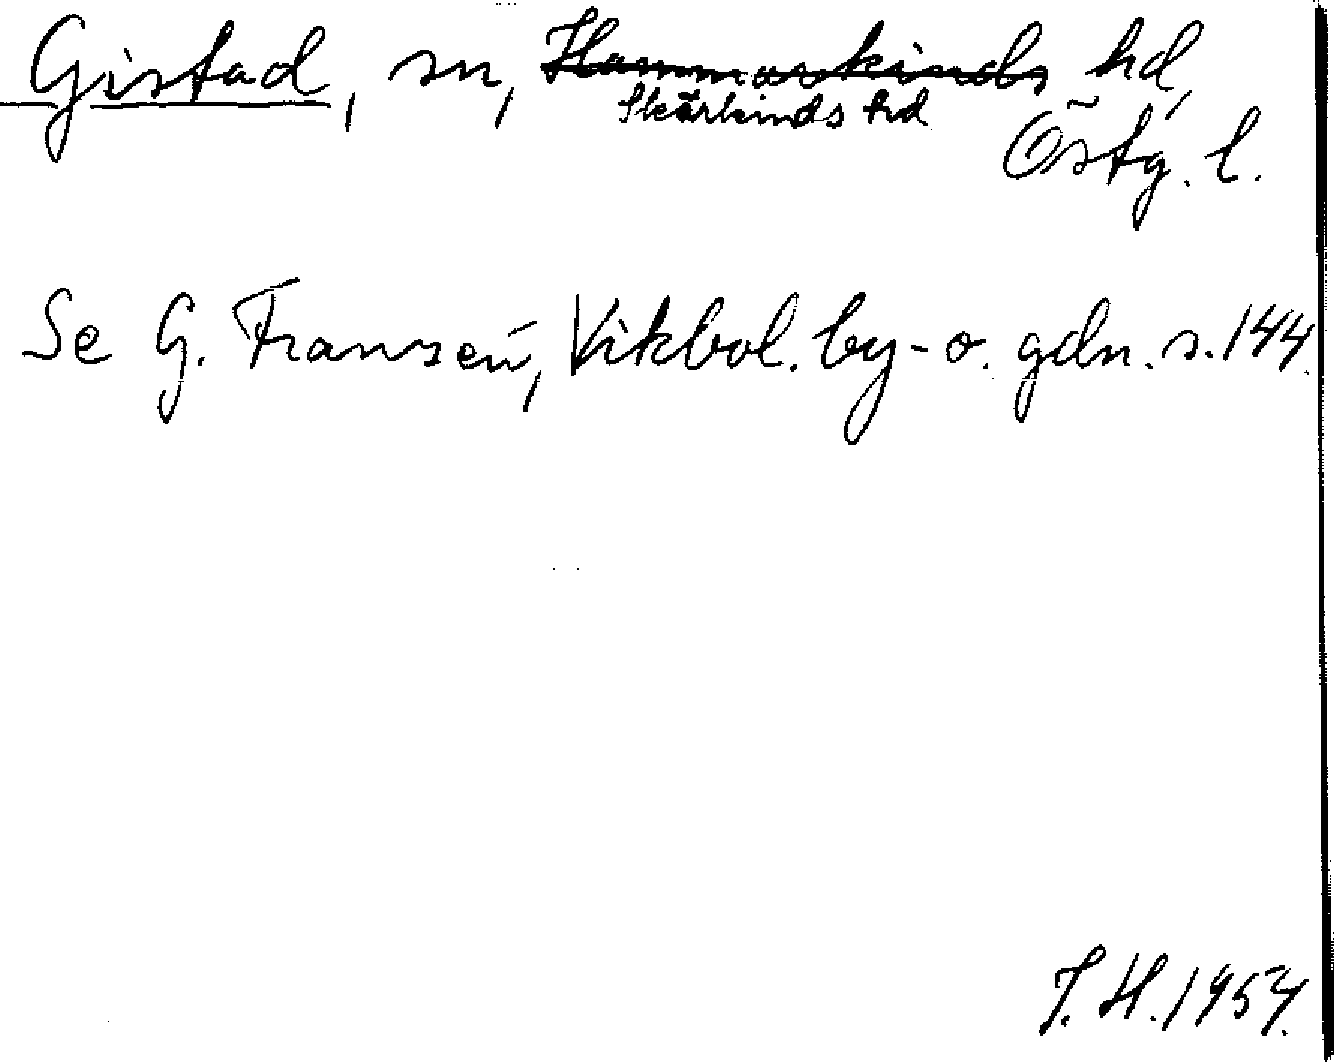 Gistad, sn, Hammarkinds hd,
Skärkinds hd
Östg. l.
Se G. Franzén, Vikbol. by- o. gdn. s. 144.
J. H. 1957.